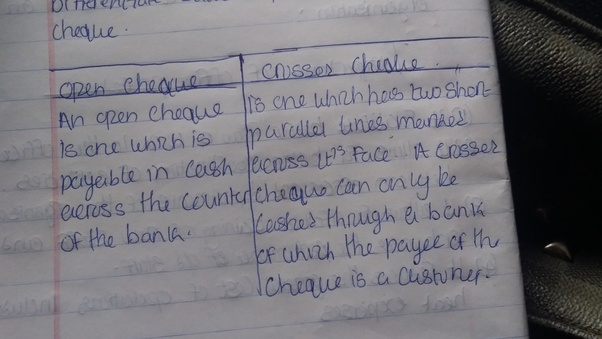 Differentiate
cheque.
open cheque
An open cheque
is one which is
payable in cash
across the counter
of the bank.
Crossed cheque
is one which has two short
parallel lines marked
across its face. A crossed
cheque can only be
cashed through a bank
of which the payee of the
cheque is a customer.